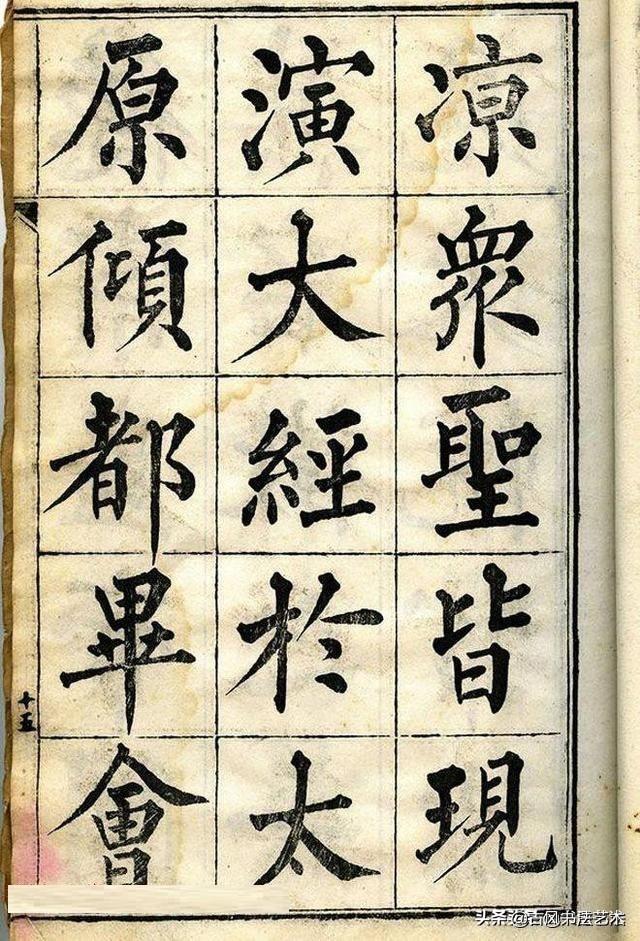 凉眾聖皆現
演大經於太
原傾都畢會
十五
头条@古风书法艺术